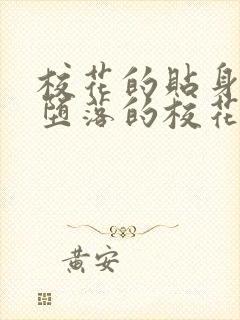 校花的貼身
墮落的校花
黃安